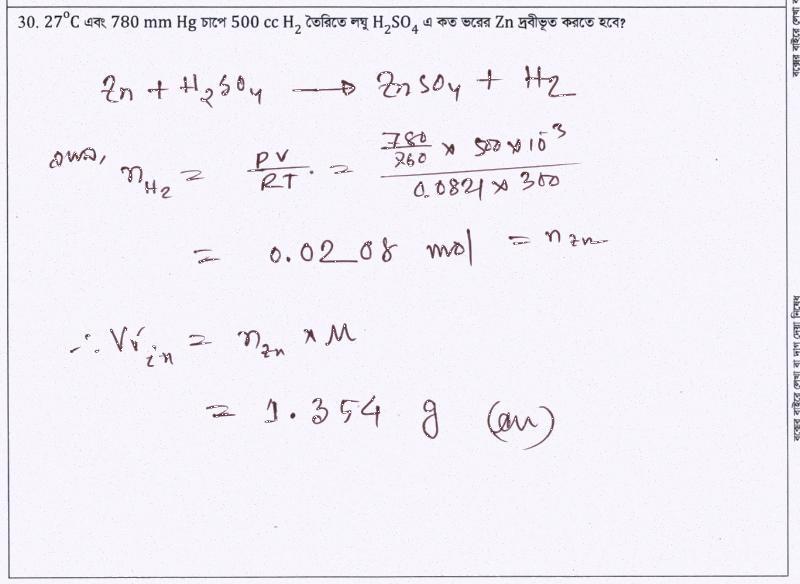 30. 27°C এবং 780 mm Hg চাপে 500 cc H₂ তৈরিতে লঘু H₂SO₄ এ কত ভরের Zn দ্রবীভূত করতে হবে?
Zn + H₂SO₄ → ZnSO₄ + H₂
n_H₂ = PV/RT = (780/760 × 500 × 10⁻³)/(0.0821 × 300)
= 0.0208 mol = n_Zn
∴ W_Zn = n_Zn × M
= 1.354 g (Ans)
বক্সের বাইরে লেখা বা দাগ দেয়া নিষেধ